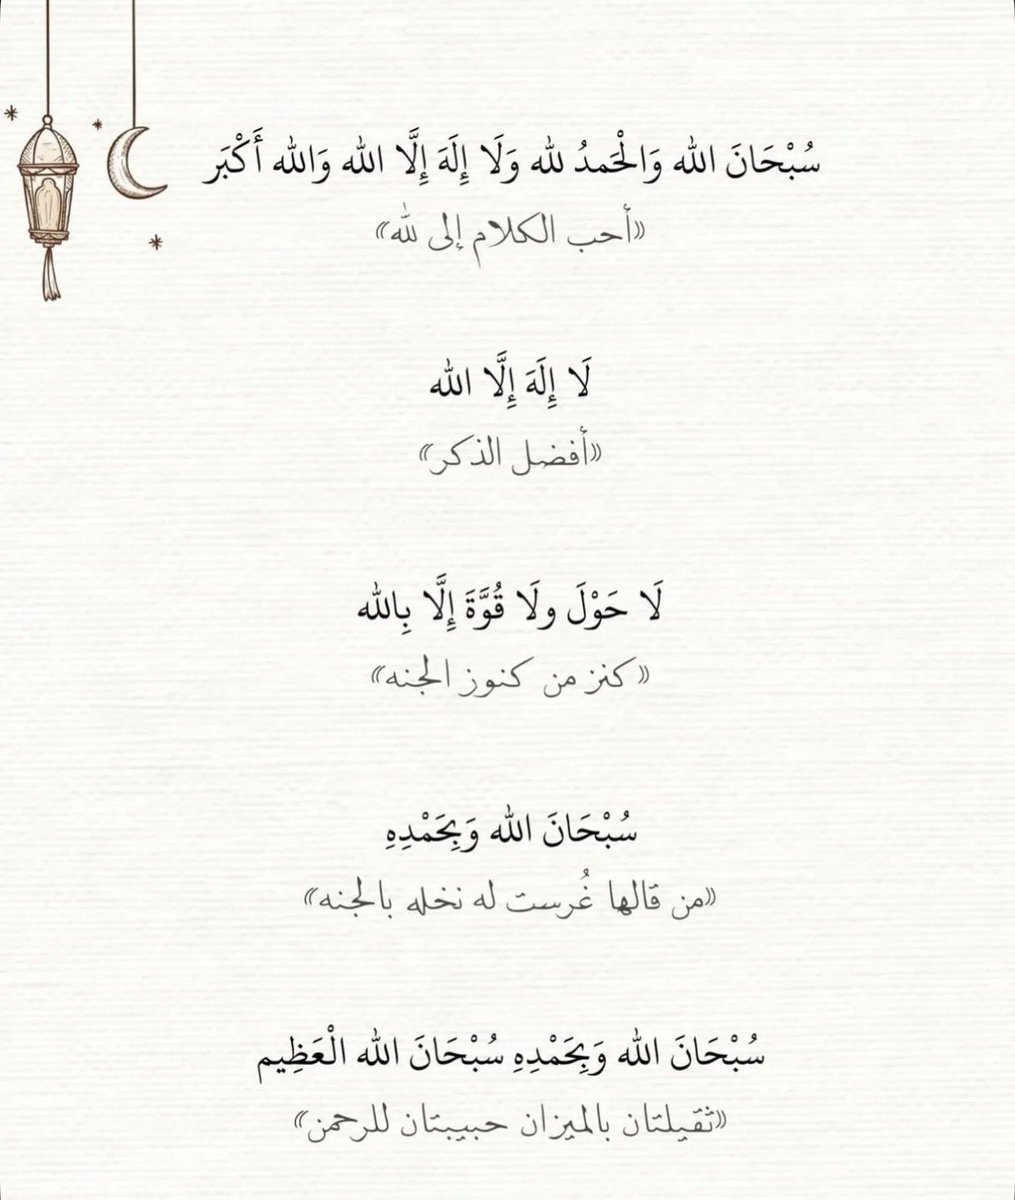 سُبْحَانَ الله وَالْحَمدُ لله وَلَا إِلَهَ إِلَّا الله وَالله أَكْبَر
«أحب الكلام إلى لله»
لَا إِلَهَ إِلَّا الله
«أفضل الذكر»
لَا حَوْلَ ولَا قُوَّةَ إِلَّا بِالله
«كنز من كنوز الجنه»
سُبْحَانَ الله وَبِحَمْدِهِ
«من قالها غُرست له نخله بالجنه»
سُبْحَانَ الله وَبِحَمْدِهِ سُبْحَانَ الله الْعَظِيم
«ثقيلتان بالميزان حبيبتان للرحمن»